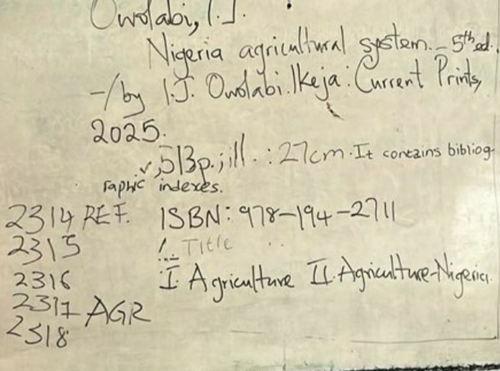 Owolabi, I.J.
Nigeria agricultural system. - 5th ed.
-/by I.J. Owolabi. Ikeja: Current Prints,
2025.
✓, 513p.; ill. : 27cm. It contains bibliog-
raphic indexes.
2314 REF. ISBN: 978-194-2711
2315 1. Title
2316 I. Agriculture II. Agriculture-Nigeria.
2317 AGR
2318